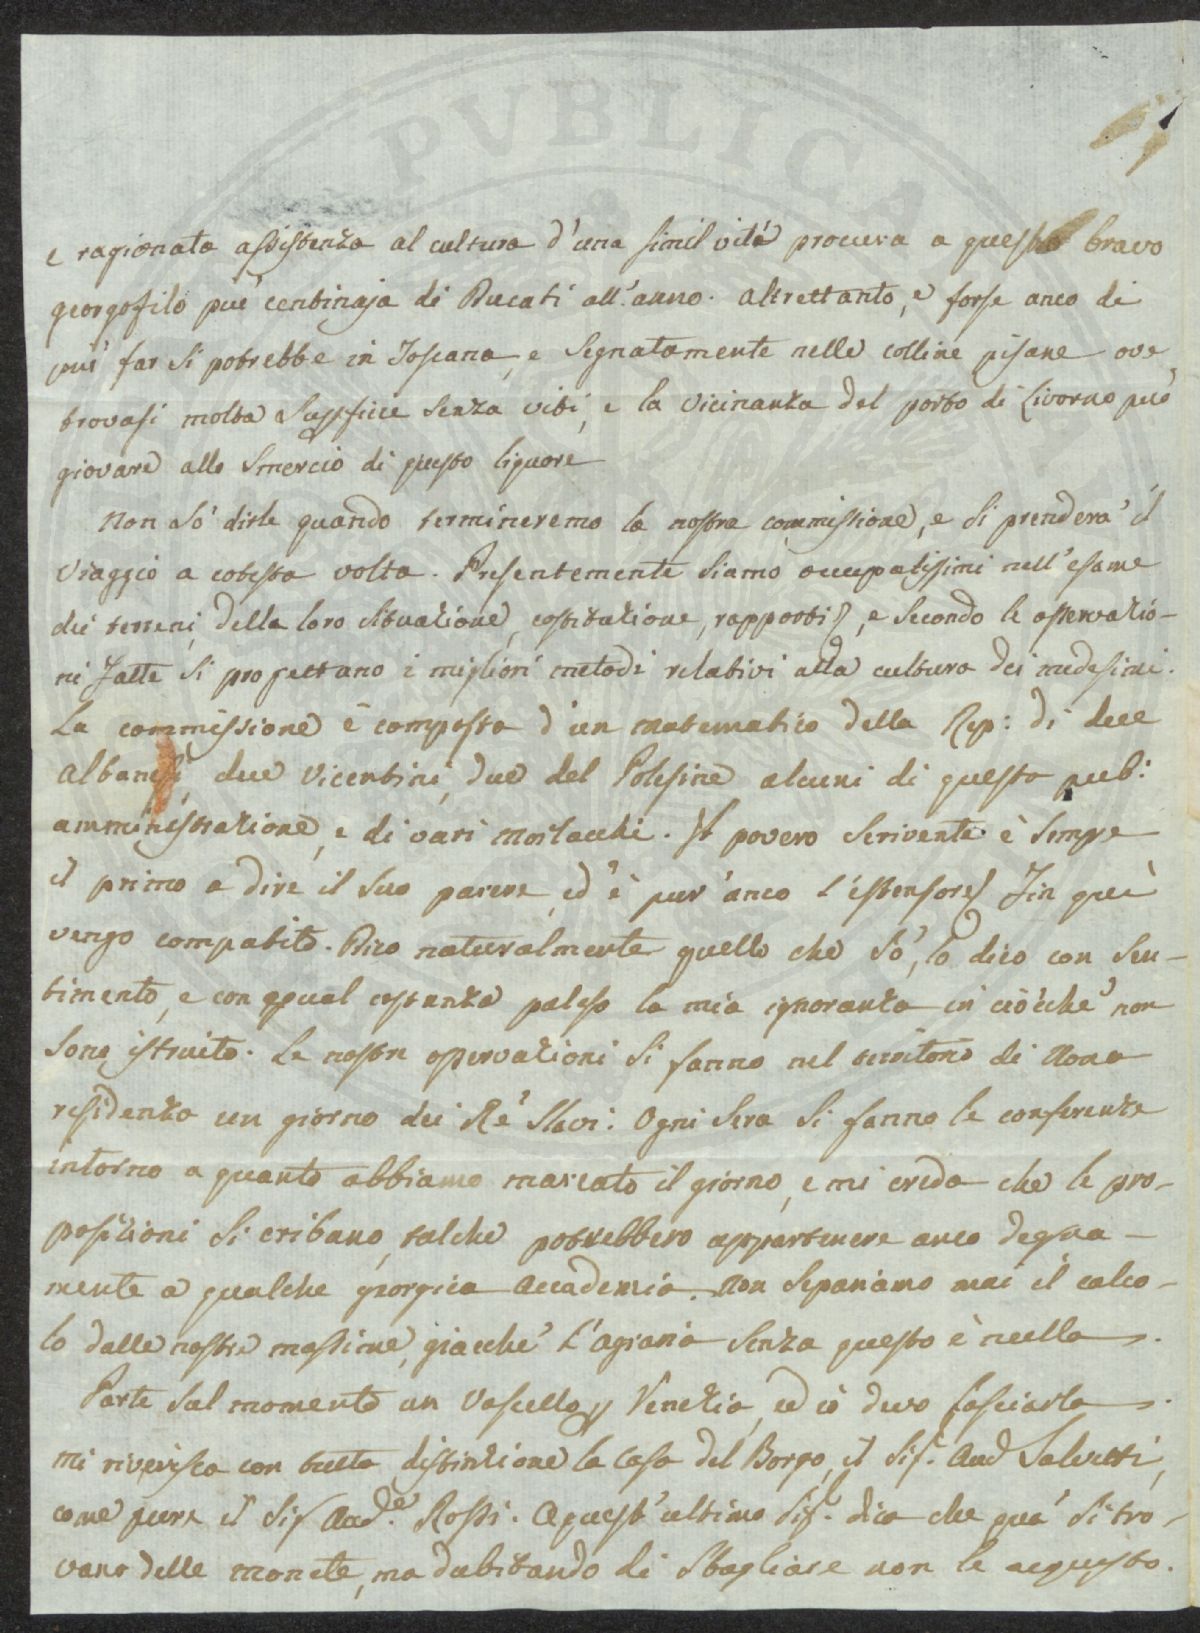 PVBLICA
e ragionata assistenza al cultura d'una simil vite procura a questo bravo
georgofilo più centinaja di Ducati all'anno. Altrettanto, e forse anco di
più far si potrebbe in Toscana, e segnatamente nelle colline pisane ove
trovasi molta superficie senza viti, e la vicinanza del porto di Livorno può
giovare allo smercio di questo liquore
Non sò dirle quando termineremo la nostra commissione, e si prenderà il
viaggio a cotesta volta. Presentemente siamo occupatissimi nell'esame
dei terreni, della loro situazione, costituzione, rapporti, e secondo le osservazio-
ni fatte si progettano i migliori metodi relativi alla cultura dei medesimi.
La commissione è composta d'un matematico della Rep: di due
Albanesi, due Vicentini, due del Polesine alcuni di questa pub:
amministrazione, e di vari Morlacchi. Il povero scrivente è sempre
il primo a dire il suo parere, ed è pur'anco l'estensore. Fin quì
vengo compatito. Dico naturalmente quello che sò, lo dico con sen-
timento, e con egual costanza paleso la mia ignoranza in ciòcchè non
sono istruito. Le nostre osservazioni si fanno nel territorio di Nona
residenza un giorno dei Rè Slavi. Ogni sera si fanno le conferenze
intorno a quanto abbiamo marcato il giorno, e mi credo che le pro-
posizioni si cribano, talche potrebbero appartenere anco degna-
mente a qualche georgica Accademia. Non separiamo mai il calco-
lo dalle nostre massime, giacchè l'agraria senza questo è nulla.
Parte sul momento un Vascello p Venezia, ed io devo lasciarla.
Mi riverisca con tutta distinzione la Casa del Borgo, il Sig. Aud Salvetti,
come pure il Sig Aud.e Rossi. A quest'ultimo Sig.r dica che quà si tro-
vano delle monete, ma dubitando di sbagliare non le acquisto.